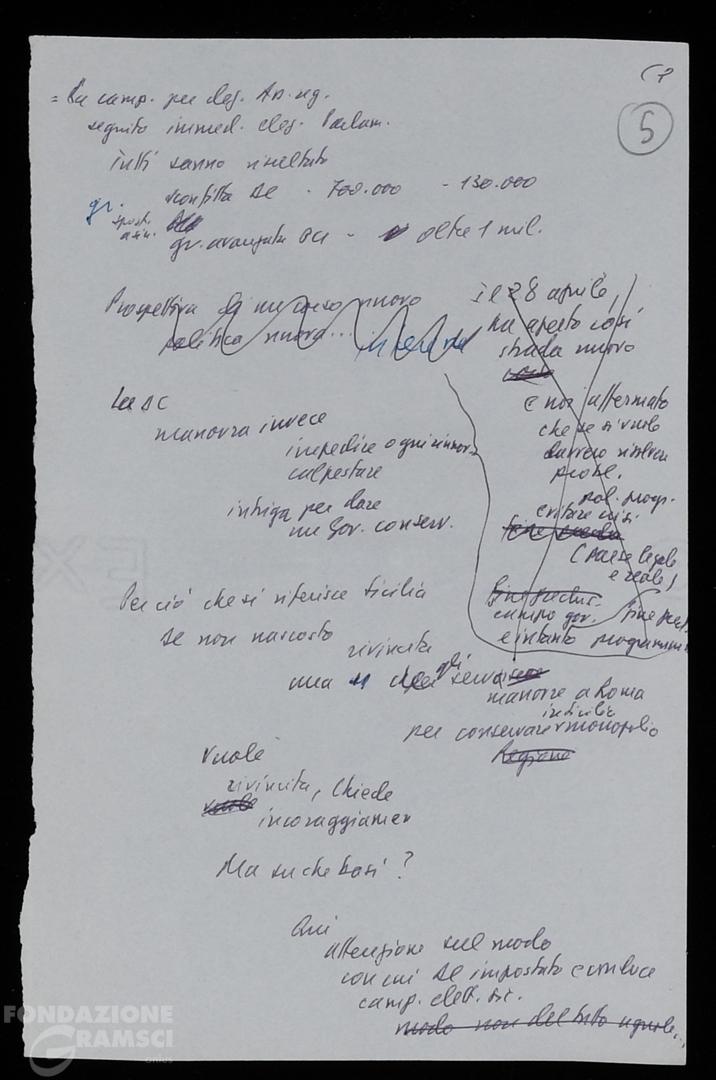 5
= La camp. per elez. As. reg.
seguito immed. elez. Parlam.
Tutti sanno risultato
gr. sconfitta DC - 700.000 - 130.000
spost. a sin.
gr. avanzata PCI - oltre 1 mil.
Prospettiva di un corso nuovo
politica nuova...
Il 28 aprile,
ha aperto così
strada nuovo
e noi affermato
che se si vuole
davvero risolvere
probl.
pol. progr.
evitare crisi
(paese legale
e reale)
campo gov.
e intanto programma
La DC
manovra invece
impedire ogni rinnov.
calpestare
intriga per dare
un gov. conserv.
Per ciò che si riferisce Sicilia
se non nascosto
rivincita
ma gli serva
manovre a Roma
in Sicilia
per conservare monopolio
Regione
Vuole
rivincita, chiede
vuole
incoraggiamen
Ma su che basi?
Qui
attenzione sul modo
con cui DC impostato e conduce
camp. elett. sic.
modo non del tutto uguale...
FONDAZIONE
GRAMSCI
onlus